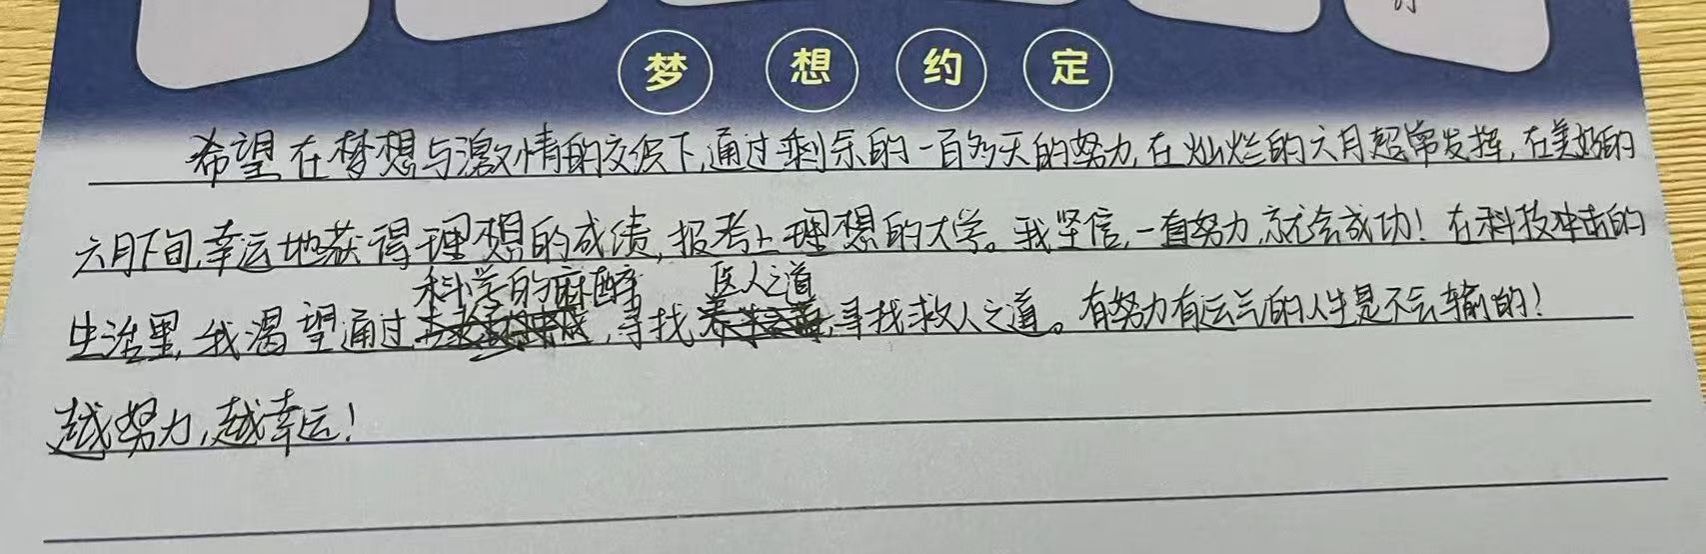 梦想约定
希望在梦想与激情的交织下,通过剩余的一百多天的努力,在灿烂的六月超常发挥,在美好的
六月下旬,幸运地获得理想的成绩,报考上理想的大学。我坚信,一直努力,就会成功!在科技冲击的
科学的麻醉 医人之道
生活里,我渴望通过,寻找,寻找救人之道。有努力有运气的人生是不会输的!
越努力,越幸运!